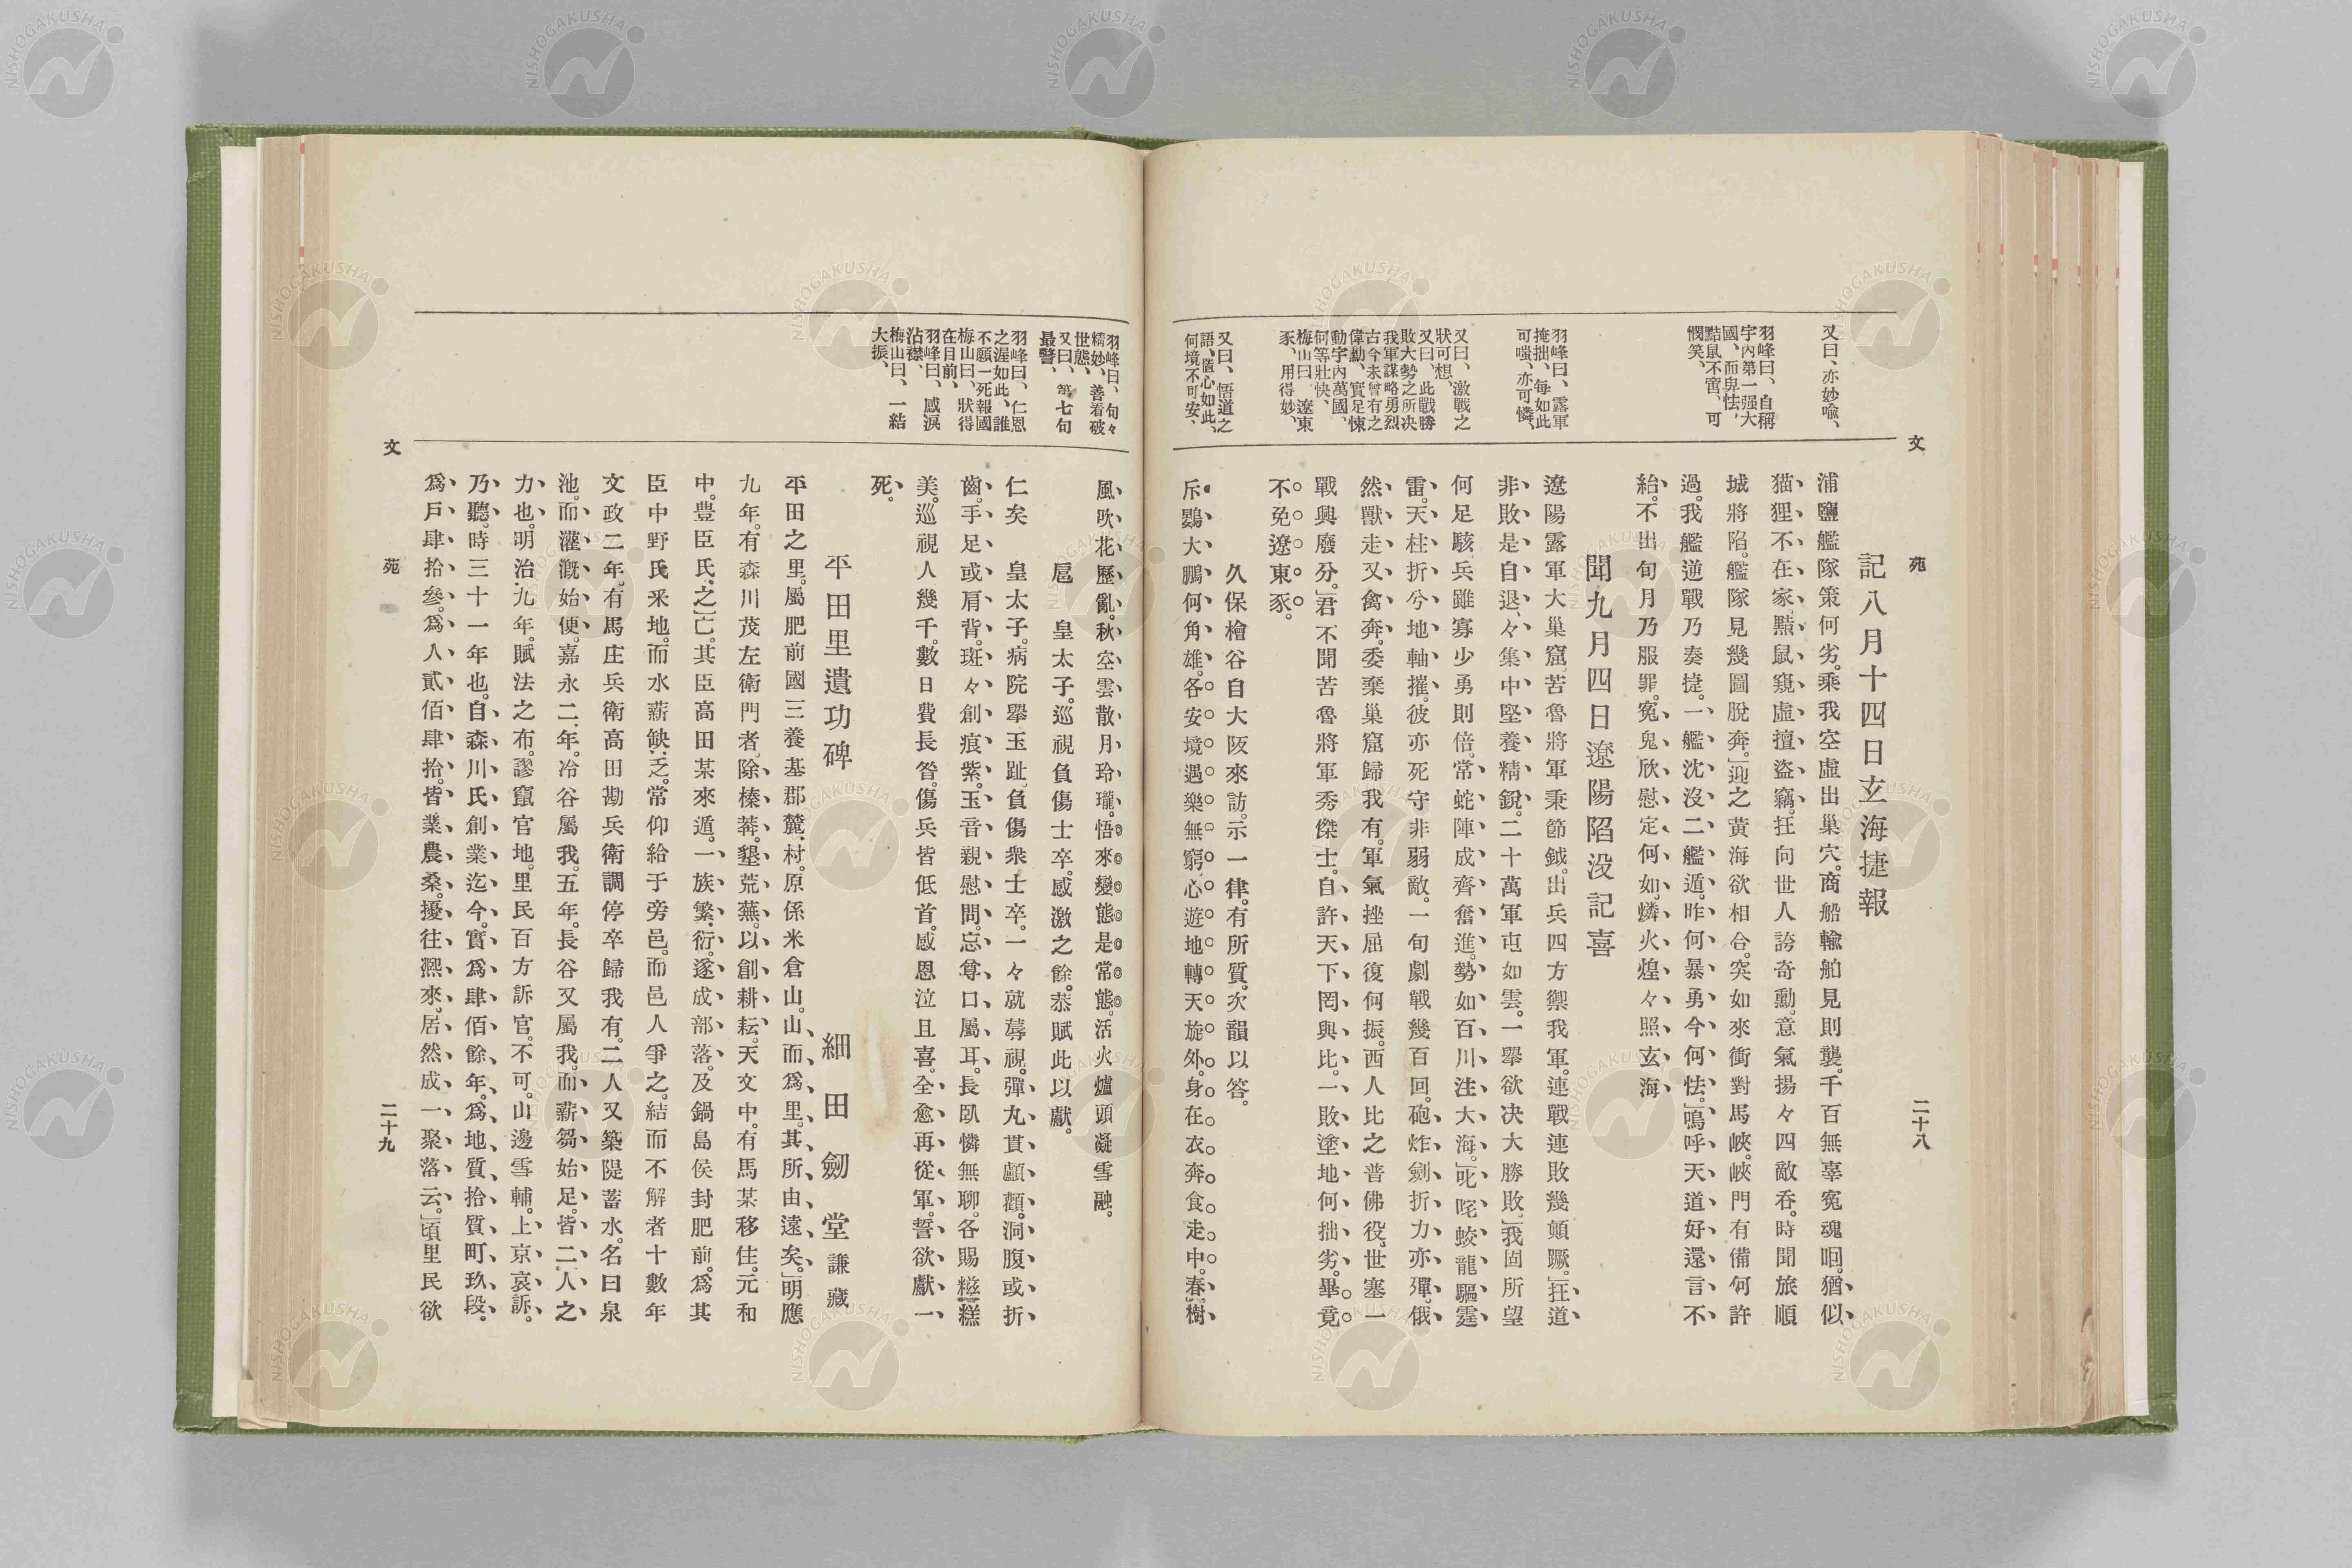 文苑
二十八
又曰、亦妙喩、
羽峰曰、自稱
宇內第一强大
國、而卑怯、
黠鼠不啻、可
憫笑、
羽峰曰、露軍
掩拙、每如此
可嗤、亦可憐、
又曰、激戰之
狀可想、
又曰、此戰勝
敗大勢之所决
我軍謀略勇烈
古今未曾有之
偉勳、實足悚
動宇內萬國、
何等壯快、
梅山曰、遼東
豕、用得妙、
又曰、悟道之
語、置心如此、
何境不可安、
記八月十四日玄海捷報
浦鹽艦隊策何劣。乘我空虛出巢穴。商船輸舶見則襲。千百無辜寃魂咽。猶似
猫狸不在家。黠鼠窺虛擅盜竊。抂向世人誇奇勳。意氣揚々四敵呑。時聞旅順
城將陷。艦隊見幾圖脫奔。」迎之黃海欲相合。突如來衝對馬峽。峽門有備何許
過。我艦逆戰乃奏捷。一艦沈沒二艦遁。昨何暴勇今何怯。」嗚呼天道好還言不
紿。不出旬月乃服罪。寃鬼欣慰定何如。燐火煌々照玄海
聞九月四日遼陽陷没記喜
遼陽露軍大巢窟。苦魯將軍秉節鉞。出兵四方禦我軍。連戰連敗幾顛蹶。」抂道
非敗是自退。々集中堅養精銳。二十萬軍屯如雲。一擧欲决大勝敗。」我固所望
何足駭。兵雖寡少勇則倍。常蛇陣成齊奮進。勢如百川注大海。」叱咤蛟龍驅霆
雷。天柱折兮地軸摧。彼亦死守非弱敵。一旬劇戰幾百回。砲炸劍折力亦殫。俄
然獸走又禽奔。委棄巢窟歸我有。軍氣挫屈復何振。西人比之普佛役。世塞一
戰興廢分。」君不聞苦魯將軍秀傑士。自許天下罔與比。一敗塗地何拙劣。畢竟
不免遼東豕。
久保檜谷自大阪來訪。示一律。有所質。次韻以答。
斥鷃大鵬何角雄。各安境遇樂無窮。心遊地轉天旋外。身在衣奔食走中。春樹
羽峰曰、句々
精妙、善看破
世態、
又曰、第七句
最警、
羽峰曰、仁恩
之渥如此、誰
不願一死報國
梅山曰、狀得
在目前、
羽峰曰、感淚
沾襟、
梅山曰、一結
大振、
風吹花歷亂。秋空雲散月玲瓏。悟來變態是常態。活火爐頭凝雪融。
扈　皇太子。巡視負傷士卒。感激之餘。恭賦此以獻。
仁矣　皇太子。病院擧玉趾。負傷衆士卒。一々就蓐視。彈丸貫顱顬。洞腹或折
齒。手足或肩背。斑々創痕紫。玉音親慰問。忘尊口屬耳。長臥憐無聊。各賜糕
美。巡視人幾千。數日費長晷。傷兵皆低首。感恩泣且喜。全愈再從軍。誓欲獻一
死。
平田里遺功碑
細田劒堂謙藏
平田之里。屬肥前國三養基郡麓村。原係米倉山。山而爲里。其所由遠矣。」明應
九年。有森川茂左衛門者。除榛莽。墾荒蕪。以創耕耘。天文中。有馬某移住。元和
中。豊臣氏之亡。其臣高田某來遁。一族繁衍。遂成部落。及鍋島侯封肥前。爲其
臣中野氏釆地。而水薪缺乏。常仰給于旁邑。而邑人爭之。結而不解者十數年
文政二年。有馬庄兵衛高田勘兵衛調停卒歸我有。二人又築隄蓄水。名曰泉
池。而灌漑始便。嘉永二年。冷谷屬我。五年。長谷又屬我。而薪芻始足。皆二人之
力也。明治九年。賦法之布。謬竄官地。里民百方訴官。不可。山邊雪輔。上京哀訴。
乃聽。時三十一年也。自森川氏創業迄今。實爲肆佰餘年。爲地質拾質町玖段。
爲戶肆拾參。爲人貳佰肆拾。皆業農桑。擾往熙來。居然成一聚落云。」頃里民欲
文苑
二十九